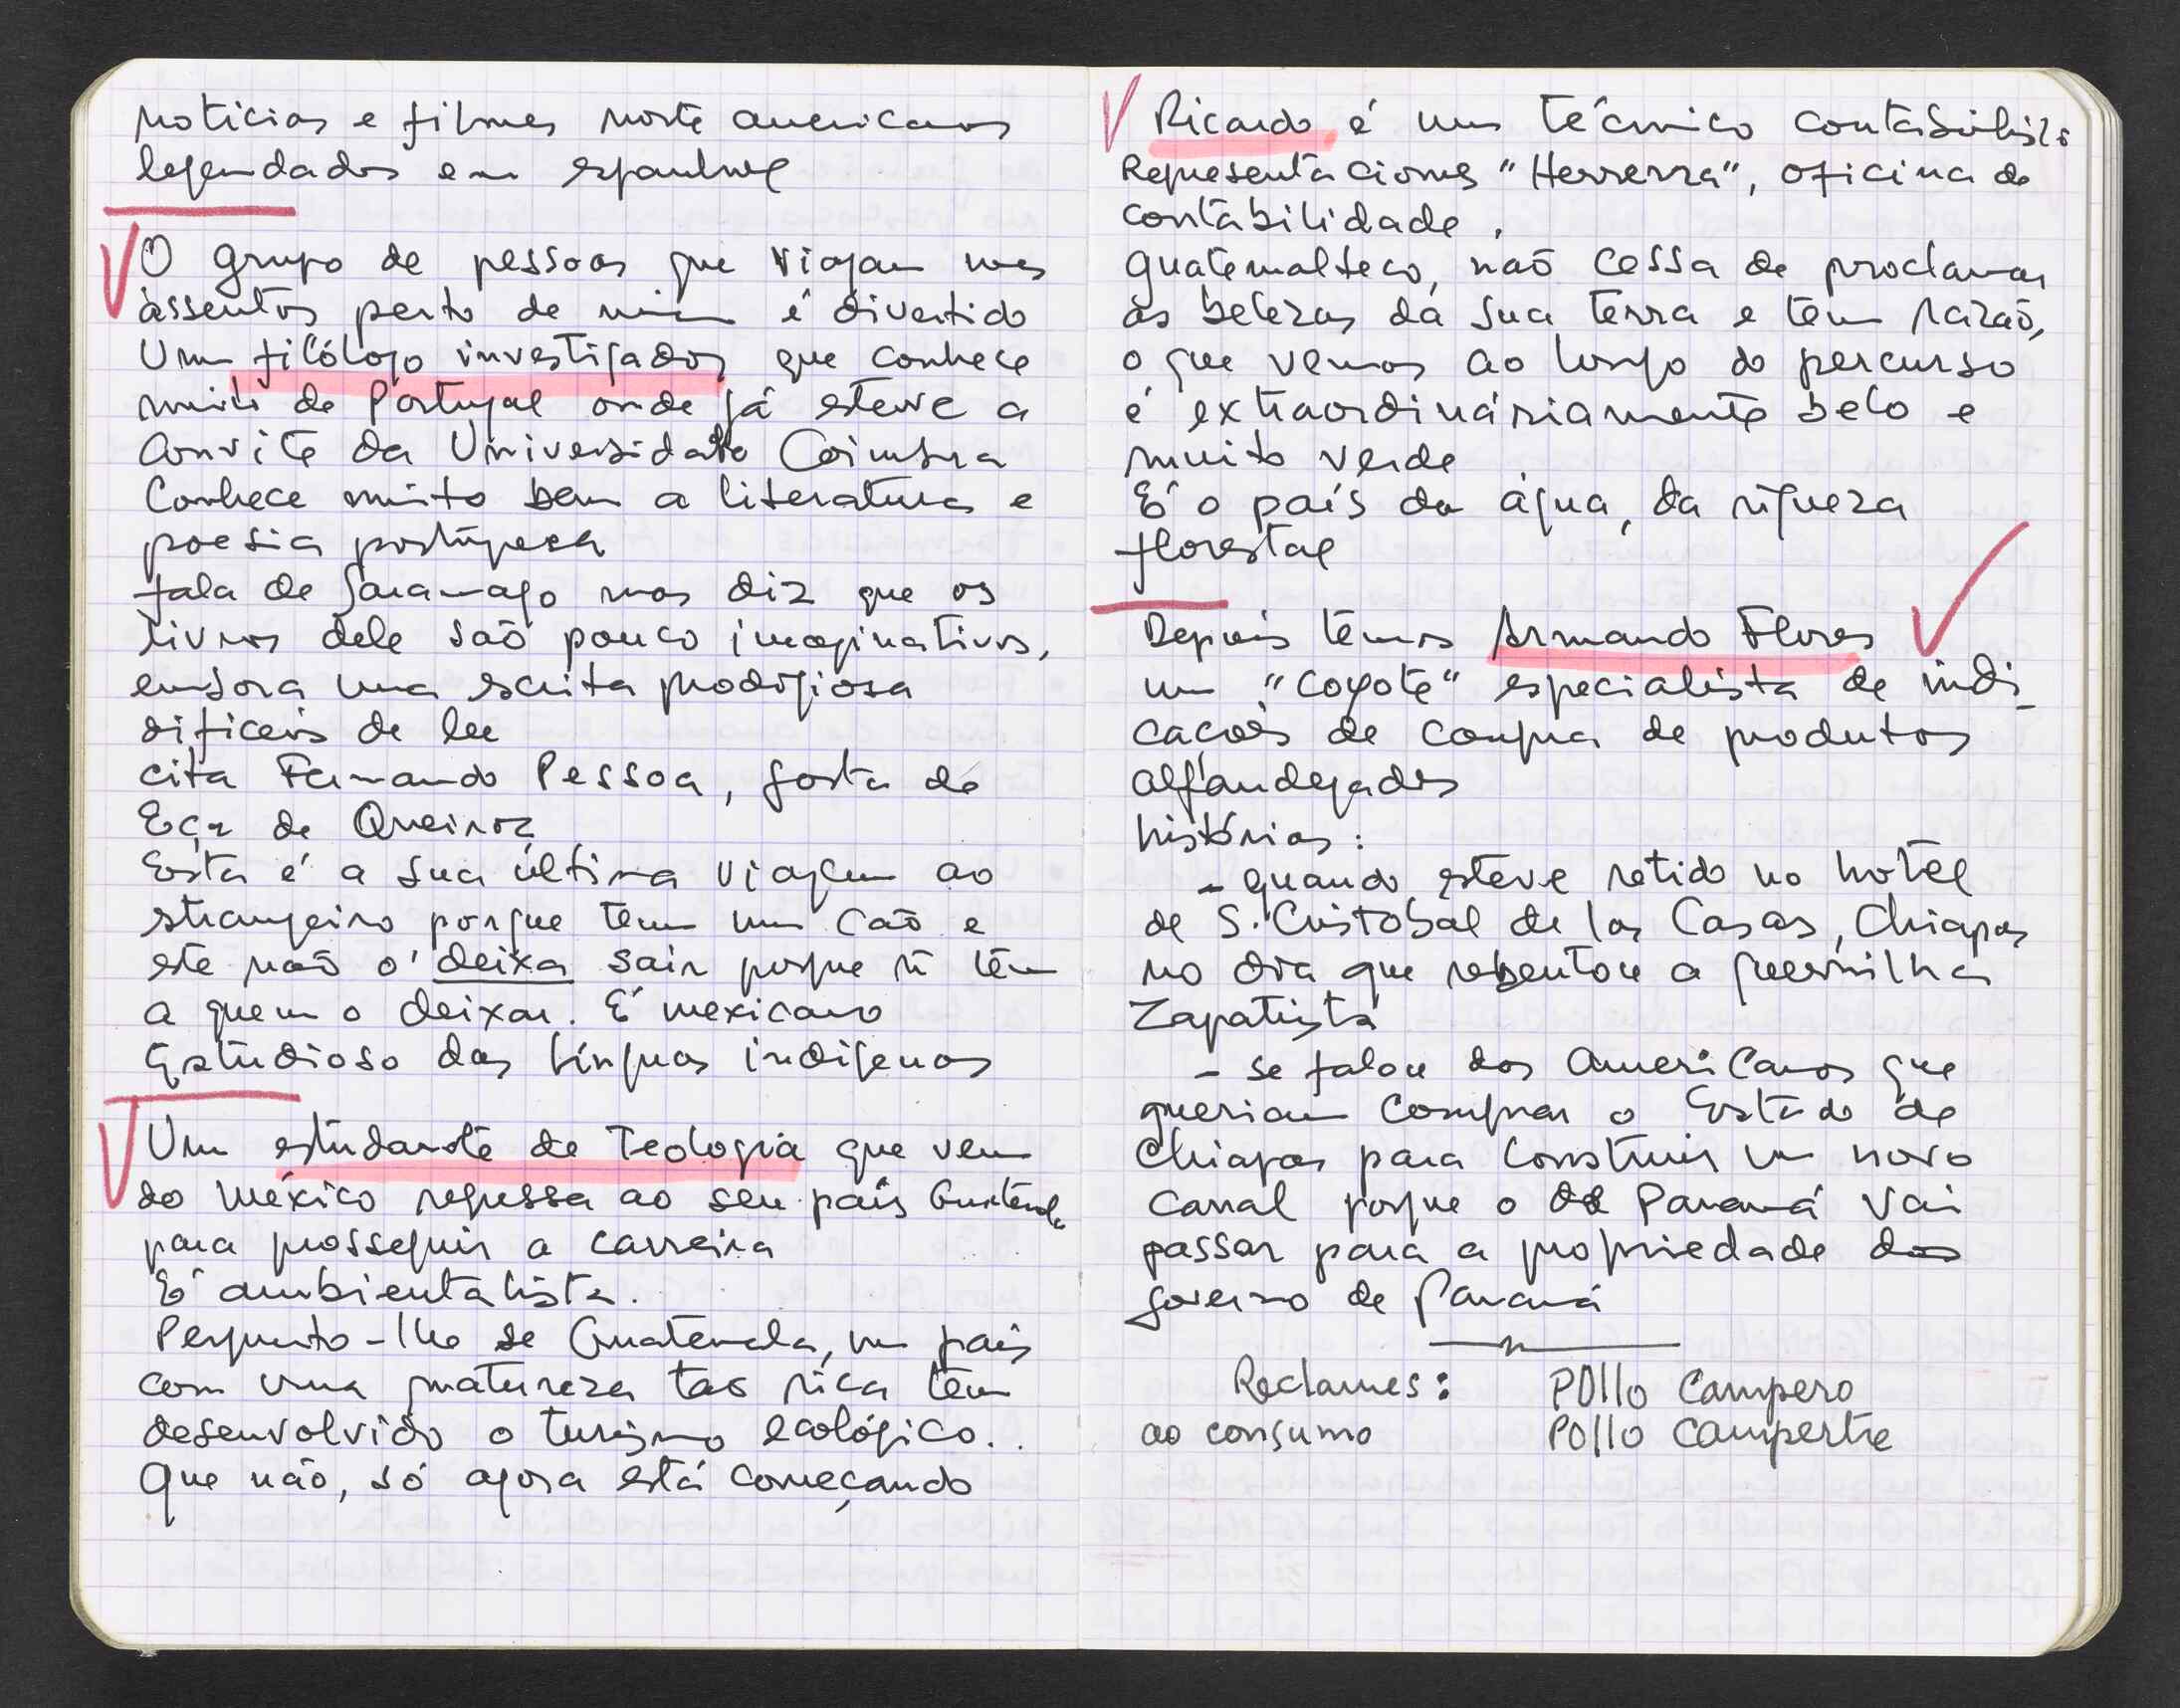 noticias e filmes norte americanos
legendados em espanhol
O grupo de pessoas que viajam nos
assentos perto de mim é divertido
Um filólogo investigador que conhece
muito de Portugal onde já esteve a
convite da Universidade Coimbra
Conhece muito bem a literatura e
poesia portuguesa
fala de Saramago mas diz que os
livros dele são pouco imaginativos,
embora uma escrita prodigiosa
dificeis de ler
cita Fernando Pessoa, gosta de
Eça de Queiroz
Esta é a sua última viagem ao
strangeiro porque tem um cão e
este não o deixa sair porque ñ tem
a quem o deixar. É mexicano
Estudioso das línguas indígenas
Um estudante de Teologia que vem
do México regressa ao seu país
para prosseguir a carreira
É ambientalista.
Pergunto-lhe se Guatemala, um país
com uma natureza tão rica tem
desenvolvido o turismo ecológico..
Que não, só agora está começando
Ricardo é um técnico
Representaciones "Herrerra", oficina de
contabilidade.
guatemalteco, não cessa de proclamar
as belezas da sua terra e tem razão,
o que vemos ao longo do percurso
é extraordináriamente belo e
muito verde
É o país da água, da riqueza
florestal
Depois temos Armando Flores
um "coyote" especialista de indi_
cações de compra de produtos
alfandegados
histórias:
- quando esteve retido no hotel
de S. Cristobal de las Casas, Chiapas
no dia que rebentou a guerrilha
Zapatista
- se falou dos Americanos que
queriam comprar o Estado de
Chiapas para construir um novo
canal porque o do Panamá vai
passar para a propriedade do
governo de Panamá
Reclames: Pollo Campero
ao consumo Pollo Campestre